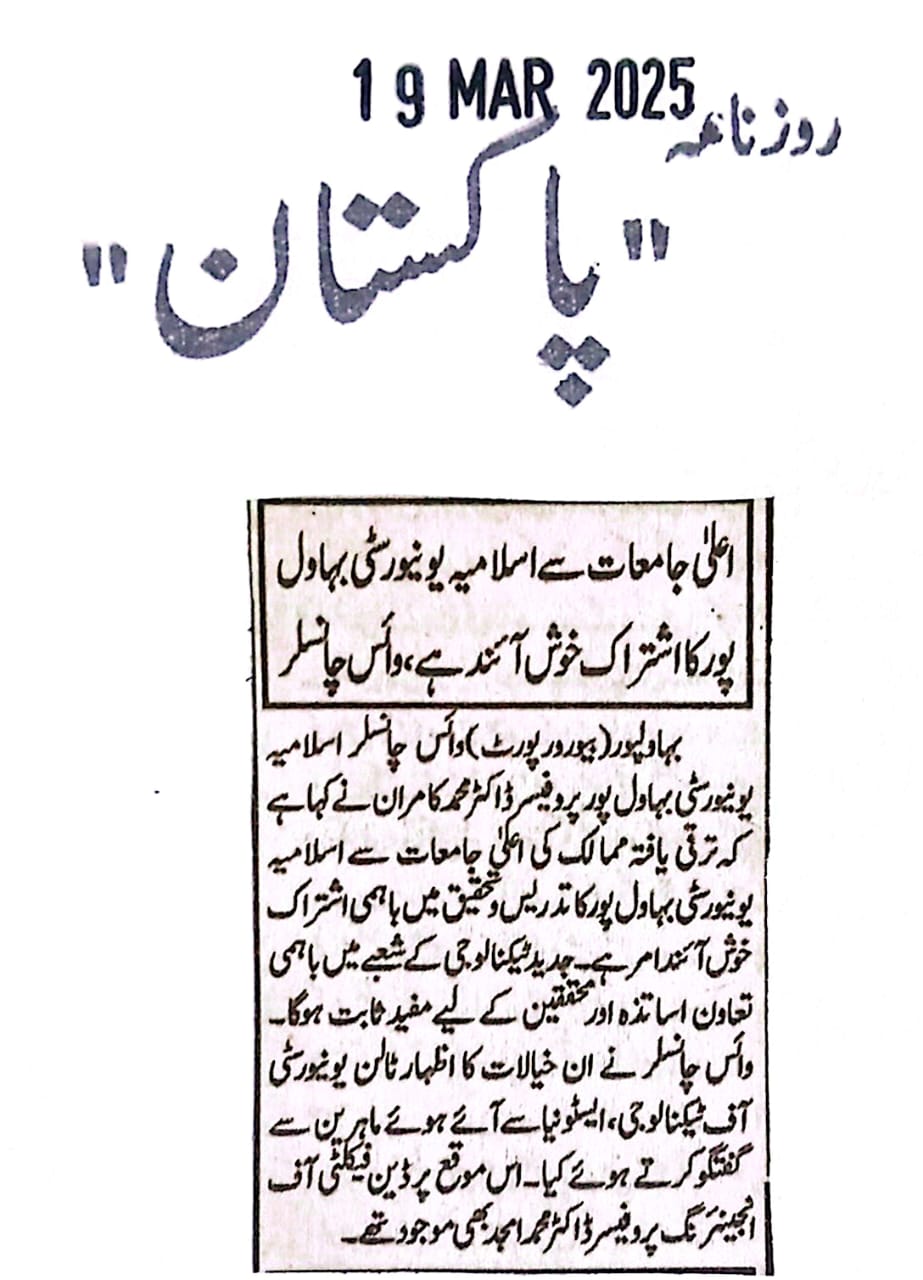 19 MAR 2025
روزنامہ
"پاکستان"
اعلیٰ جامعات سے اسلامیہ یونیورسٹی بہاول
پور کا اشتراک خوش آئند ہے، وائس چانسلر
بہاولپور (بیورو رپورٹ) وائس چانسلر اسلامیہ
یونیورسٹی بہاول پور پروفیسر ڈاکٹر محمد کامران نے کہا ہے
کہ ترقی یافتہ ممالک کی اعلیٰ جامعات سے اسلامیہ
یونیورسٹی بہاول پور کا تدریس و تحقیق میں باہمی اشتراک
خوش آئند امر ہے۔ جدید ٹیکنالوجی کے شعبے میں باہمی
تعاون اساتذہ اور محققین کے لیے مفید ثابت ہوگا۔
وائس چانسلر نے ان خیالات کا اظہار ٹالن یونیورسٹی
آف ٹیکنالوجی، ایسٹونیا سے آئے ہوئے ماہرین سے
گفتگو کرتے ہوئے کیا۔ اس موقع پر ڈین فیکلٹی آف
انجینئرنگ پروفیسر ڈاکٹر محمد امجد بھی موجود تھے۔